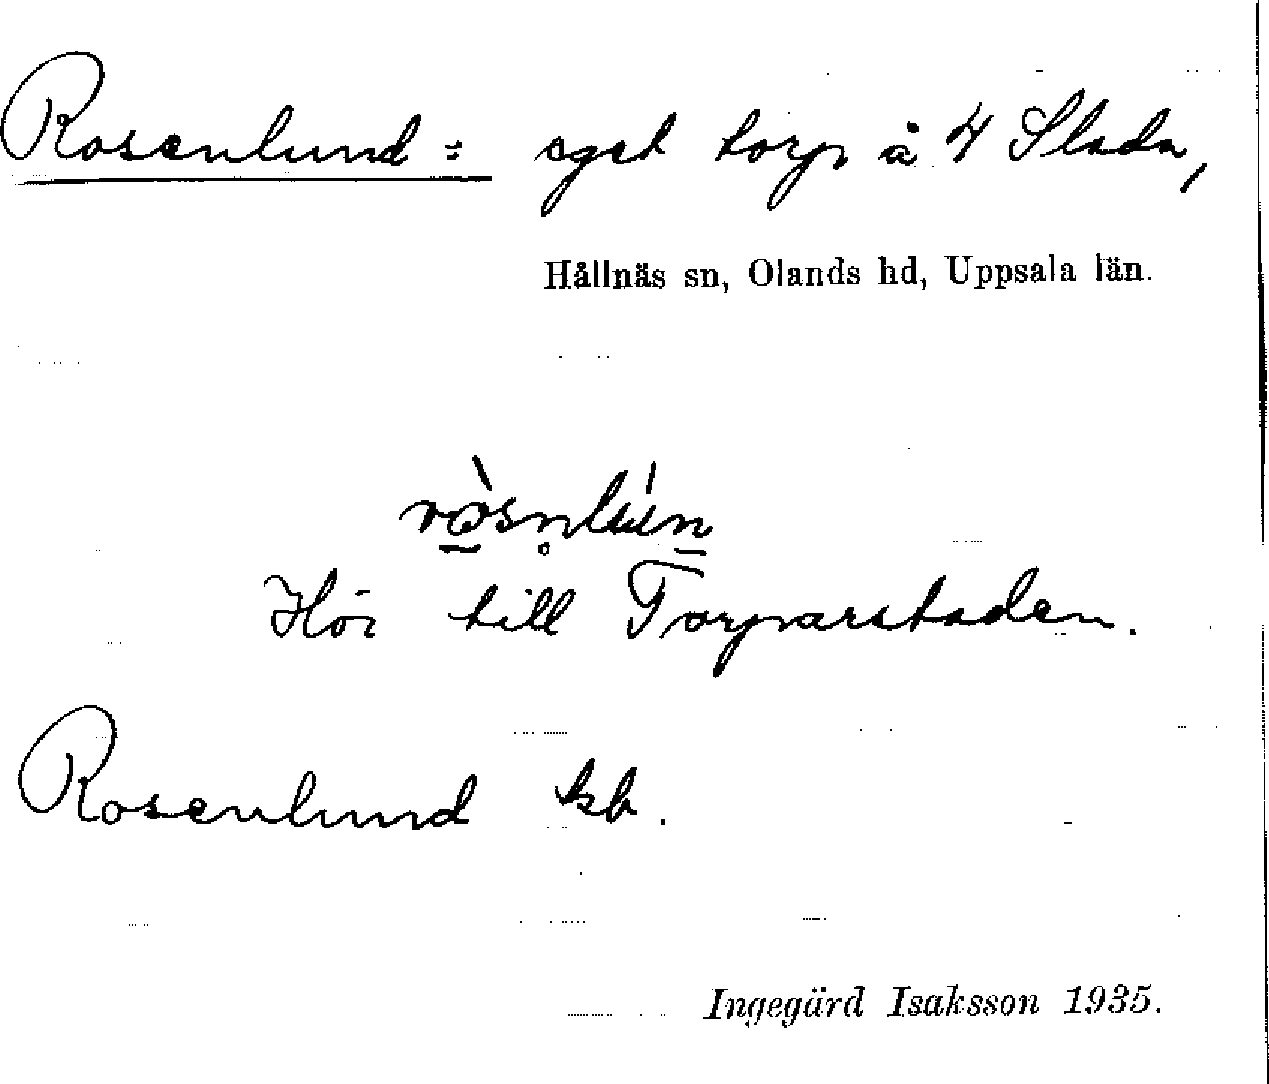 Rosenlund : eget torp å 4 Slada,
Hållnäs sn, Olands hd, Uppsala län.
Hör till Torparstaden.
Rosenlund kb.
Ingegärd Isaksson 1935.